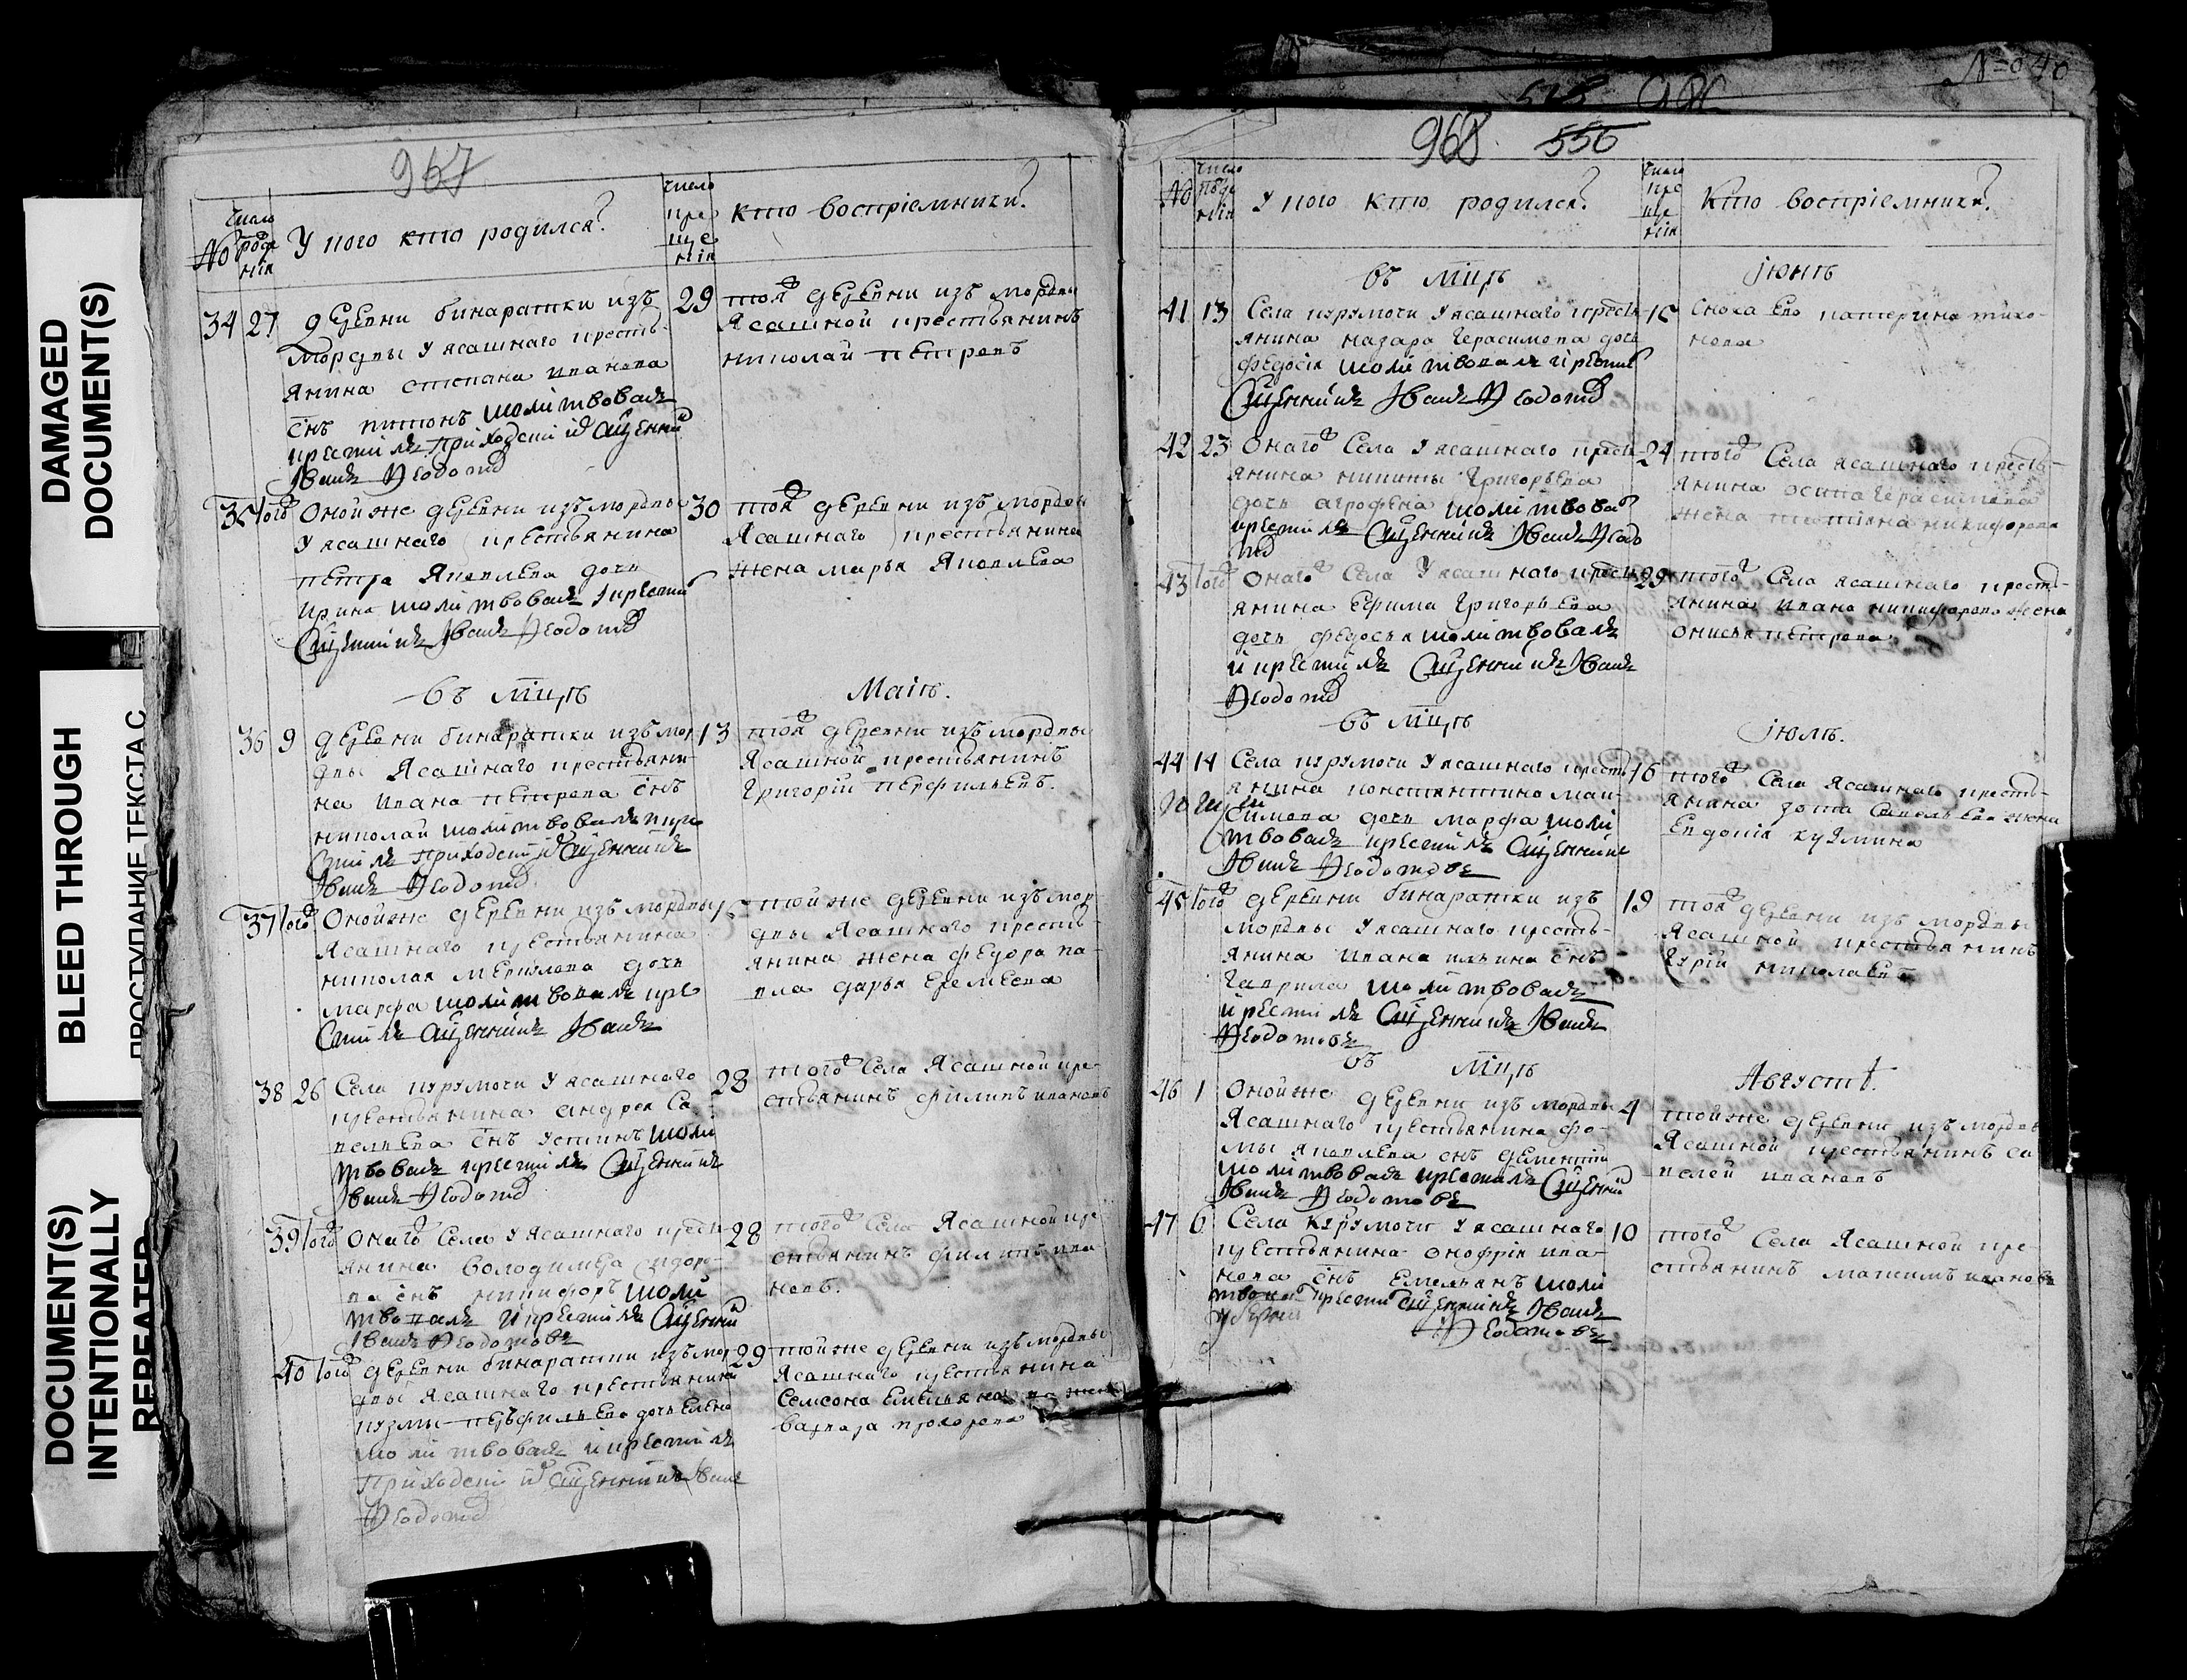 DAMAGED
DOCUMENT(S)
BLEED THROUGH
ПРОСТУПАНИЕ ТЕКСТА С
DOCUMENT(S)
INTENTIONALLY
REPEATED
967
No
число рожденія
У кого кто родился?
число крещенія
кто воспріемники?
34 27 деревни бинаратки изъ
мордвы у ясашнаго кресть-
янина степана иванова
снъ молитвовалъ
крестилъ приходскій сщенникъ
Иванъ Ѳеодотов
29 тоя деревни изъ мордвы
Ясашной крестьянинъ
николай петровъ
35 того Онойже деревни изъ мордвы
у ясашнаго крестьянина
петра Яковлева дочь
Ирина молитвовалъ и крестил
Сщенникъ Иванъ Ѳеодотов
30 тоя деревни изъ мордвы
Ясашнаго крестьянина
жена марья Яковлева
въ мцѣ Маіѣ.
36 9 деревни бинаратки изъ мор
двы Ясашнаго крестьяни-
на Ивана петрова снъ
николай молитвовалъ и кре
стилъ приходскій сщенникъ
Иванъ Ѳеодотов
13 тоя деревни изъ мордвы
Ясашной крестьянинъ
Григорій перфильевъ.
37 того Онойже деревни изъ мордвы
Ясашнаго крестьянина
николая дочь
марфа молитвовалъ кре
стилъ сщенникъ Иванъ
тойже деревни изъ мор
двы Ясашнаго кресть-
янина жена федора па-
вла дарья Еремеева
38 26 Села курумочи у ясашнаго
крестьянина андрея Са-
вельева снъ устинъ моли
твовалъ крестилъ Сщенникъ
Иванъ Ѳеодотов
28 того села Ясашной кре-
стьянинъ филипъ ивановъ
39 того Онаго Села у ясашнаго кресть
янина володимера сидоро-
ва снъ никифоръ моли
твовалъ и крестилъ Сщенник
Иванъ Ѳеодотовъ
28 того Села Ясашной кре-
стьянинъ филипъ ива-
новъ.
40 того деревни бинаратки изъ мор
двы Ясашнаго крестьянина
кузмы перьфильева дочь Елена
молитвовалъ и крестилъ
приходскій сщенникъ Иванъ
Ѳеодотов
29 тойже деревни изъ мордвы
Ясашнаго крестьянина
Семсона Емельянова жена
варвара прохорова
968 556
No
число рожденія
У кого кто родился?
число крещенія
Кто воспріемники?
въ мцѣ іюнѣ
41 13 Села курумочи у ясашнаго кресть
янина назара Герасимова дочь
федосія молитвовалъ и крестил
Сщенникъ Иванъ Ѳеодотов
15 сноха Ево катерина тихо-
нова
42 23 Онаго Села у ясашнаго кресть
янина никиты Григорьева
дочь агрофена молитвовал
крестилъ Сщенникъ Иванъ Ѳеодо
тов
24 того Села ясашнаго кресть-
янина осипа Герасимова
жена никифорова
43 того Онаго Села у ясашнаго кресть
янина Ефима Григорьева
дочь федосья молитвовалъ
и крестилъ Сщенникъ Иванъ
Ѳеодотов
29 того Села ясашнаго кресть-
янина Ивана никифорова жена
онисья петрова
въ мцѣ іюлѣ.
44 14 Села курумочи у ясашнаго кресть
янина констянтина Мак-
симова дочь марфа моли
твовалъ крестилъ Сщенник
Иванъ Ѳеодотовъ
16 того Села Ясашнаго кресть-
янина зота Савельева жена
Евдокія кузмина
45 того деревни бинаратки изъ
мордвы у ясашнаго кресть-
янина Ивана ильина снъ
Гаврила молитвовалъ
и крестилъ Сщенникъ Иванъ
Ѳеодотовъ
19 тоя деревни изъ мордвы
Ясашной крестьянинъ
Гурій николаевъ
въ мцѣ Августѣ.
46 1 Онойже деревни изъ мордвы
Ясашнаго крестьянина фо-
мы Яковлева снъ дементій
молитвовалъ крестилъ Сщенник
Иванъ Ѳеодотовъ
4 тойже деревни изъ мордвы
Ясашной крестьянинъ са
велей ивановъ
47 6 Села Курумочи у ясашнаго
крестьянина онофрія ива-
нова снъ Емельянъ моли
твовал крестил Сщенникъ Иванъ
Ѳеодотовъ
10 того Села Ясашной кре-
стьянинъ максимъ ивановъ